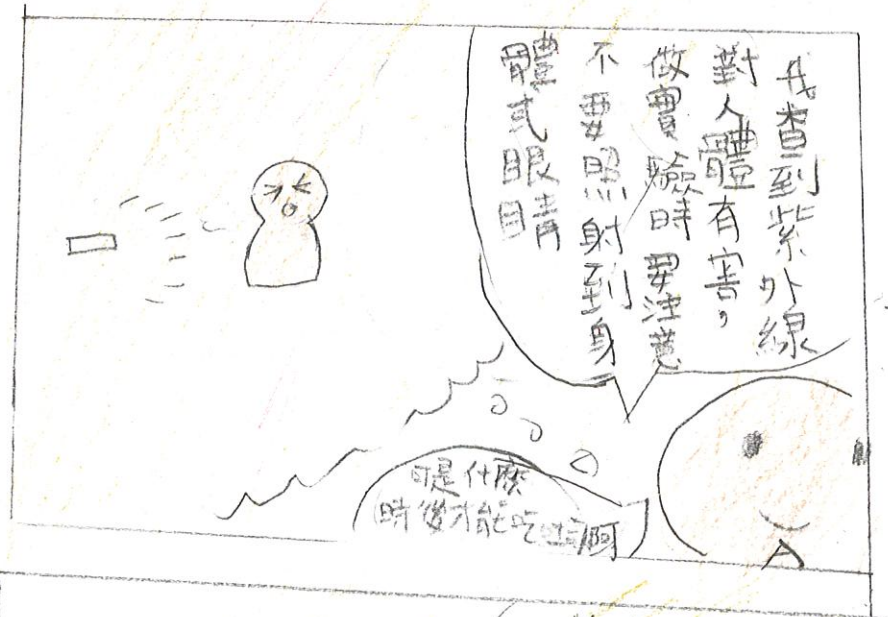 我查到紫外線
對人體有害，
做實驗時要注意
不要照射到身
體或眼睛
可是什麼
時後才能吃啊
A